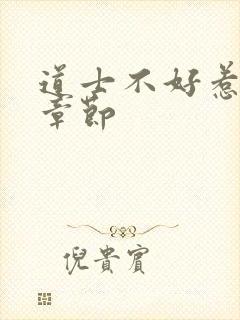 道士不好惹
章節
倪貴賓